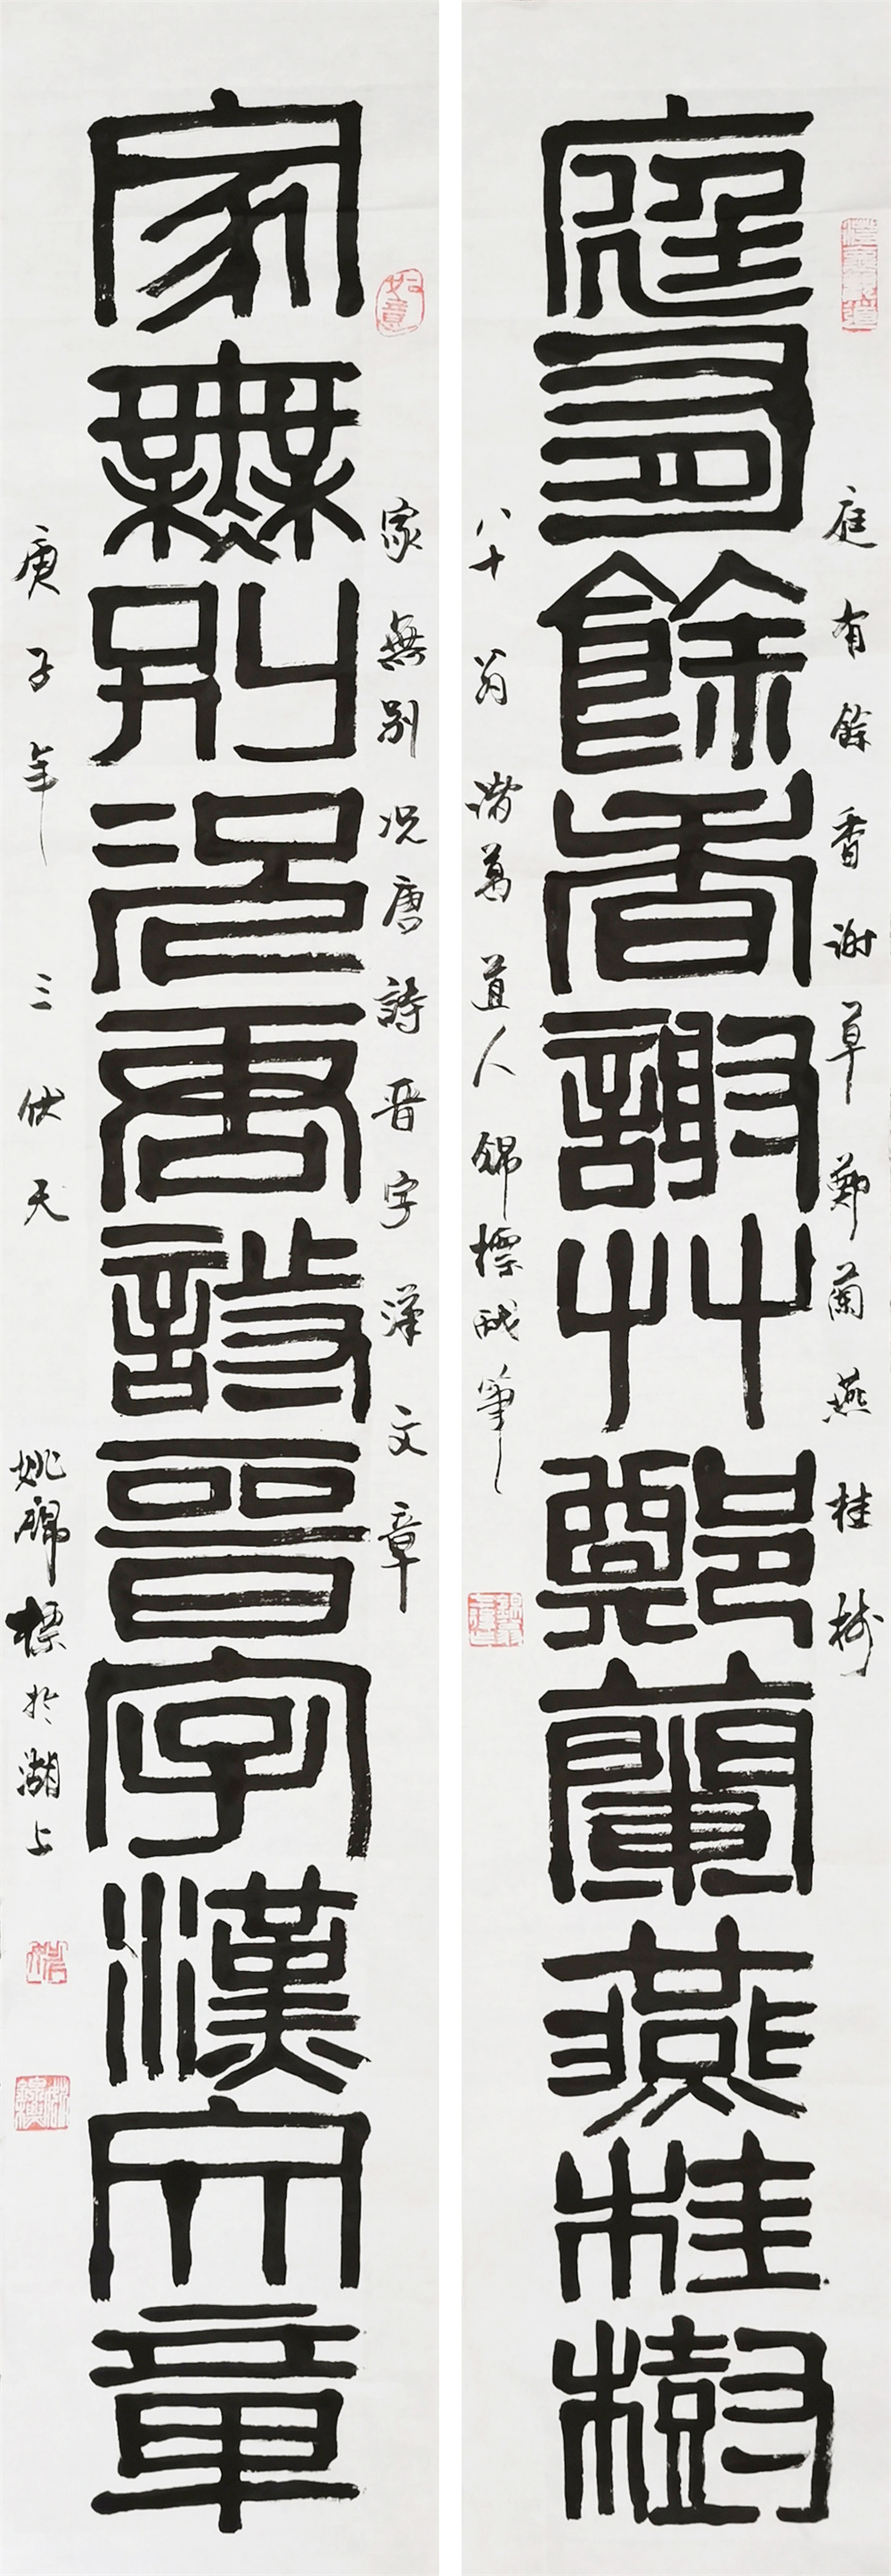 庭有餘香謝草鄭蘭燕桂樹
庭有餘香謝艸鄭蘭燕桂樹
八十翁 萬道人 錦標 筆
如意
家無別況唐詩晉字漢文章
家無別況唐詩晉字漢文章
庚子年 三伏天 姚錦標於湖上